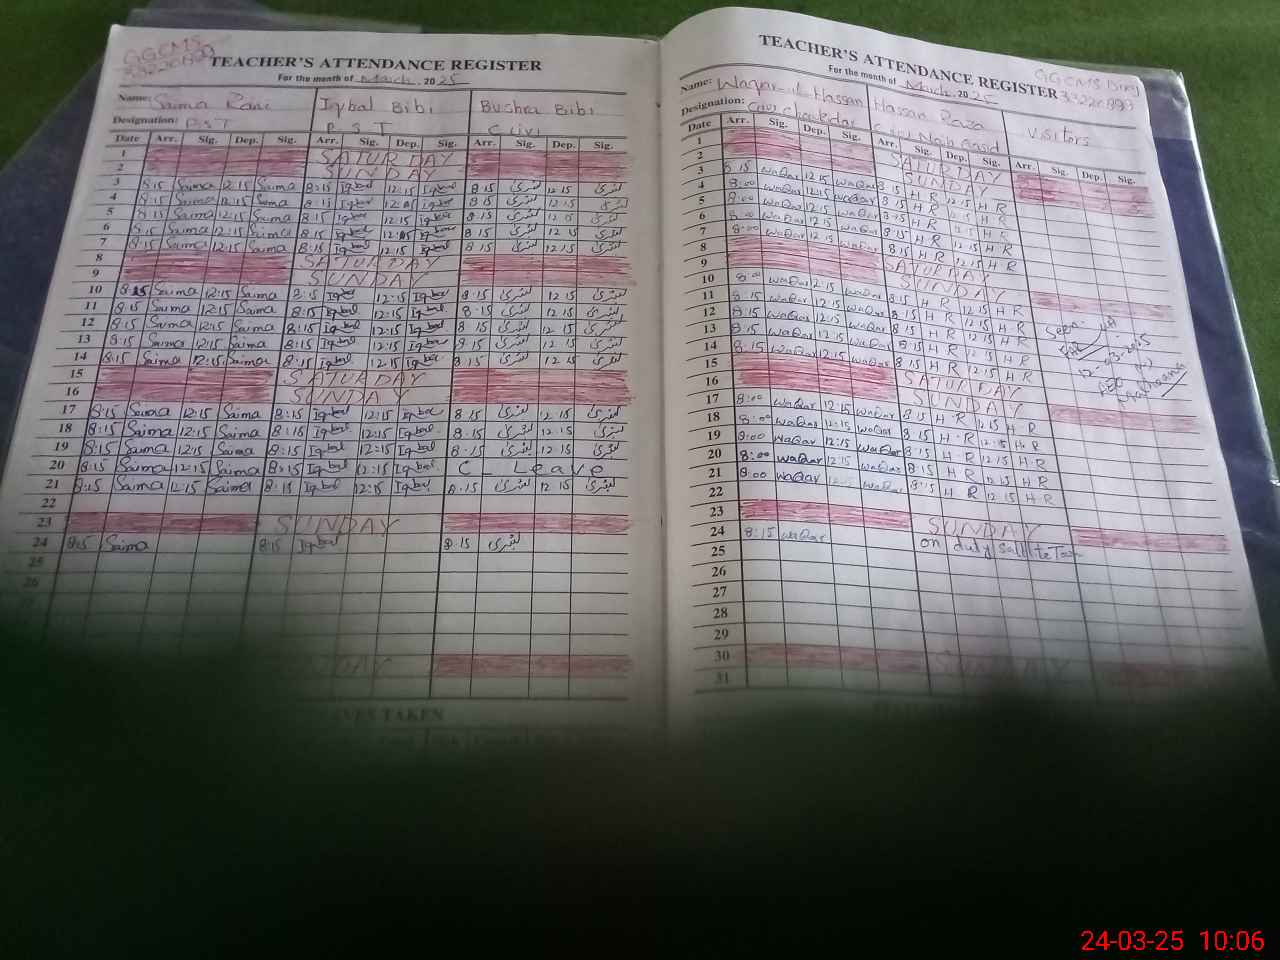 GGCMS
TEACHER'S ATTENDANCE REGISTER
For the month of March 2025
Name: Saima Rani Iqbal Bibi Bushra Bibi
Designation: P.S.T P.S.T C Civi
Date Arr. Sig. Dep. Sig. Arr. Sig. Dep. Sig. Arr. Sig. Dep. Sig.
1 SATURDAY
2 SUNDAY
3 8:15 Saima 12:15 Saima 8:15 Iqbal 12:15 Iqbal 8 15 بشری 12.15 بشری
4 8:15 Saima 12:15 Saima 8:15 Iqbal 12:15 Iqbal 8 15 بشری 12 15 بشری
5 8:15 Saima 12:15 Saima 8:15 Iqbal 12:15 Iqbal 8 15 بشری 12 15 بشری
6 8:15 Saima 12:15 Saima 8:15 Iqbal 12:15 Iqbal 8 15 بشری 12 15 بشری
7 8:15 Saima 12:15 Saima 8:15 Iqbal 12:15 Iqbal 8 15 بشری 12 15 بشری
8 SATURDAY
9 SUNDAY
10 8:15 Saima 12:15 Saima 8:15 Iqbal 12:15 Iqbal 8 15 بشری 12 15 بشری
11 8:15 Saima 12:15 Saima 8:15 Iqbal 12:15 Iqbal 8 15 بشری 12 15 بشری
12 8:15 Saima 12:15 Saima 8:15 Iqbal 12:15 Iqbal 8 15 بشری 12 15 بشری
13 8:15 Saima 12:15 Saima 8:15 Iqbal 12:15 Iqbal 8 15 بشری 12 15 بشری
14 8:15 Saima 12:15 Saima 8:15 Iqbal 12:15 Iqbal 8 15 بشری 12 15 بشری
15 SATURDAY
16 SUNDAY
17 8:15 Saima 12:15 Saima 8:15 Iqbal 12:15 Iqbal 8 15 بشری 12 15 بشری
18 8:15 Saima 12:15 Saima 8:15 Iqbal 12:15 Iqbal 8.15 بشری 12.15 بشری
19 8:15 Saima 12:15 Saima 8:15 Iqbal 12:15 Iqbal 8.15 بشری 12 15 بشری
20 8:15 Saima 12:15 Saima 8:15 Iqbal 12:15 Iqbal C_Leave
21 8:15 Saima 12:15 Saima 8:15 Iqbal 12:15 Iqbal 8.15 بشری 12 15 بشری
22
23 SUNDAY
24 8:15 Saima 8:15 Iqbal 8 15 بشری
25
26
TAKEN
TEACHER'S ATTENDANCE REGISTER
For the month of March 2025
GGCMS
Name: Waqar ul Hassan Hassan Raza Visitors
Designation: Civi Chawkidar Civi Naib Qasid
Date Arr. Sig. Dep. Sig. Arr. Sig. Dep. Sig. Arr. Sig. Dep. Sig.
1 SATURDAY
2 SUNDAY
3 8:15 WaQar 12 15 WaQar 8 15 H R 12 15 H R
4 8:00 WaQar 12:15 WaQar 8 15 H R 12 15 H R
5 8:00 WaQar 12:15 WaQar 8 15 H R 12 15 H R
6 8:00 WaQar 12 15 WaQar 8 15 H R 12 15 H R
7 8:00 WaQar 12 15 WaQar 8 15 H R 12 15 H R
8 SATURDAY
9 SUNDAY
10 8:00 WaQar 12:15 WaQar 8 15 H R 12 15 H R
11 8:15 WaQar 12:15 WaQar 8 15 H R 12 15 H R
12 8:15 WaQar 12:15 WaQar 8 15 H R 12 15 H R
13 8:15 WaQar 12:15 WaQar 8 15 H R 12 15 H R
14 8:15 WaQar 12:15 WaQar 8 15 H R 12 15 H R
Seen
12-03-2025
15 SATURDAY
16 SUNDAY
17 8:00 WaQar 12:15 WaQar 8 15 H R 12 15 H R
18 8:00 WaQar 12:15 WaQar 8 15 H R 12:15 H R
19 8:00 WaQar 12:15 WaQar 8 15 H R 12 15 H R
20 8:00 WaQar 12 15 WaQar 8 15 H R 12 15 H R
21 8:00 WaQar 12 15 WaQar 8:15 H R 12 15 H R
22
23 SUNDAY
24 8:15 WaQar on duty
25
26
27
28
29
30 SUNDAY
31
24-03-25 10:06